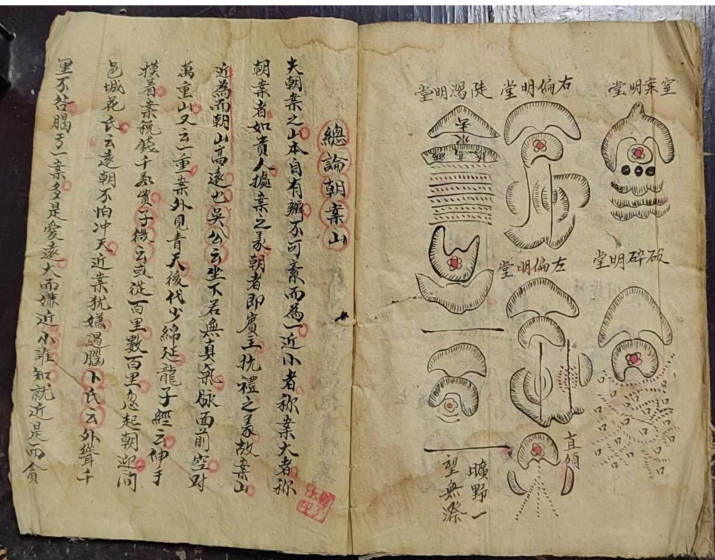 室案明堂
右偏明堂
陡瀉明堂
破碎明堂
左偏明堂
直傾
曠野一
望無際
總論朝案山
夫朝案之山本自有辨不可而為一近小者称案大者称
朝案者如貴人據案之義朝者即賓主抗禮之義故案山
近為而朝山高遠也吳公云坐下若無真氣脉面前空对
萬重山又云一重案外見青天後代少綿延龍子經云伸手
摸着案税錢千萬貫子後云或從百里數百里忽起朝迎间
邑城范氏云遠朝不怕冲天近案犹嫌過腦卜氏云外聳千
里不若腦于一案多是愛遠大而嫌近小誰知就近是而貪